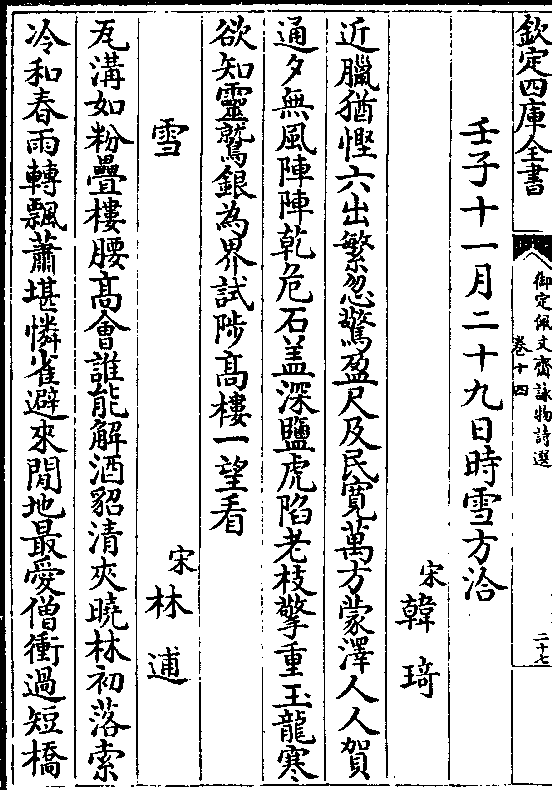 欽定四庫全書
御定佩文齋詠物詩選
卷十四
二十七
壬子十一月二十九日時雪方洽
宋韓琦
近臘猶慳六出繁忽驚盈尺及民寛萬方蒙澤人人賀
通夕無風陣陣乾危石盖深鹽虎陷老枝擎重玉龍寒
欲知靈鷲銀為界試陟髙樓一望看
雪
宋林逋
瓦溝如粉疊樓腰髙會誰能解酒貂清夾曉林初落索
冷和春雨轉飄蕭堪憐雀避來閒地最愛僧衝過短橋